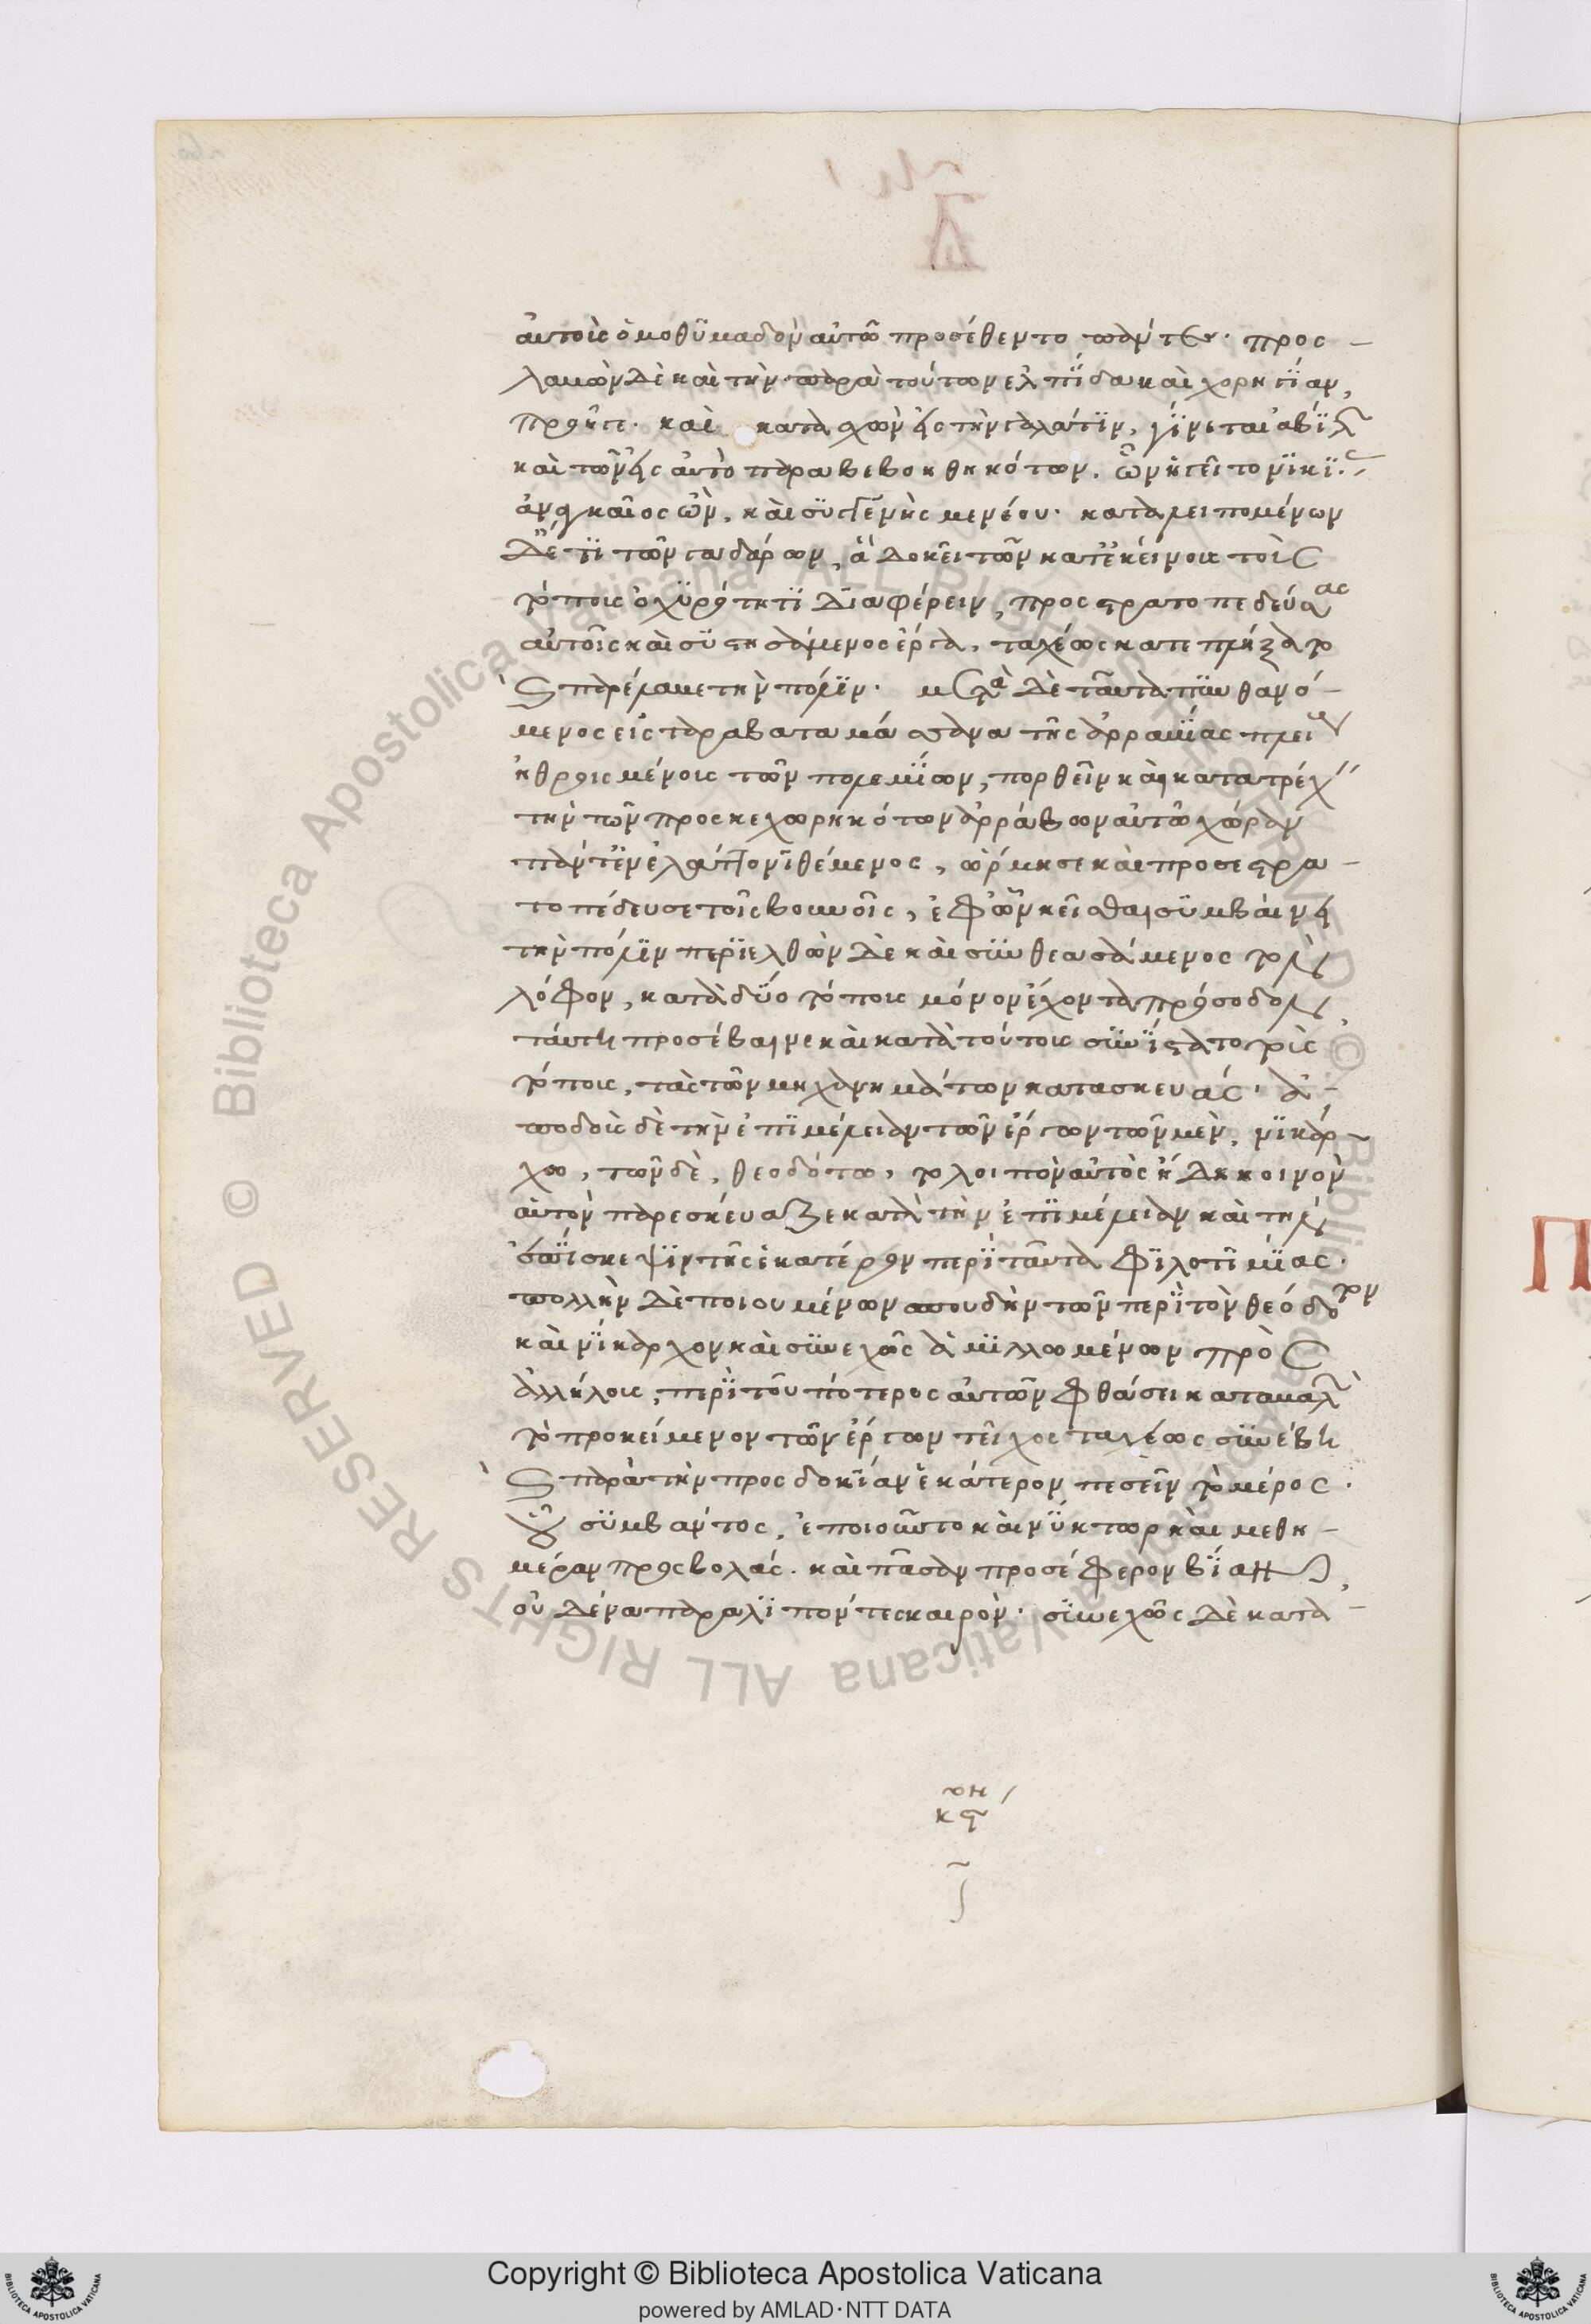 αὐτοὺς ὁμοθϋμαδὸν αὐτῶ προσέθεντο πάντες· προς
λαμὼν δὲ καὶ τὴν παρὰ τούτων ἐλπΐδα καὶ χορηγΐαν,
προῆγε· καὶ κατασχὼν εἰς τὴν γαλάτϊν, γΐνεται ἀβΐλων
καὶ τῶν εἰς αὐτὸ παραβεβοηθηκότων. ὧν ἡγεῖτο νϊκΐας
ἀναγκαῖος ὢν, καὶ σϋγγενὴς μενέου· καταλειπομένων
δὲ ἔτϊ τῶν γαδάρων, ἃ δοκεῖ τῶν κατ' ἐκείνους τοὺς
τόπους ὀχϋρότητϊ διαφέρειν, προςστρατοπεδεύσας
αὐτοῖς καὶ σϋστησάμενος ἔργα, ταχέως κατεπλήξατο
καὶ παρέλαμε τὴν πόλϊν· μετὰ δὲ ταῦτα πϋνθανό
μενος εἰς τὰ ραβαταμάσσανα τῆς ἀρραμΐας πλείους
ἡθροισμένους τῶν πολεμΐων, πορθεῖν καὶ κατατρέχειν
τὴν τῶν προςκεχωρηκότων ἀρράβων αὐτῶ χώραν
πάντ' ἐν ἐλάττονϊ θέμενος, ὥρμησε καὶ προσεστρα
τοπέδευσε τοῖς βουνοῖς, ἐφ' ὧν κεῖσθαι σϋμβαίνει
τὴν πόλϊν περϊελθὼν δὲ καὶ σϋνθεασάμενος τὸν
λόφον, κατὰ δΰο τόπους μόνον ἔχοντα πρόσοδον
ταύτη προσέβαινε καὶ κατὰ τούτους σϋνΐστατο τοὺς
τόπους, τὰς τῶν μηχανημάτων κατασκευάς· ἀ
ποδοὺς δὲ τὴν ἐπϊμέλειαν τῶν ἔργων τῶν μὲν, νϊκάρ
χω, τῶν δὲ, θεοδότω, τὸ λοιπὸν αὐτὸς ἤδη κοινὸν
αὑτὸν παρεσκεύαζε κατὰ τὴν ἐπϊμέλειαν καὶ τὴν
ἐπΐσκεψϊν τῆς ἑκατέρων περϊ ταῦτα φϊλοτϊμΐας·
πολλὴν δὲ ποιουμένων σπουδὴν τῶν περϊ τὸν θεόδοτον
καὶ νΐκαρχον καὶ σϋνεχῶς ἁμϊλλωμένων πρὸς
ἀλλήλους, περϊ τοῦ πότερος αὐτῶν φθάσει καταμαλὼν
τὸ προκείμενον τῶν ἔργων τεῖχος ταχέως σϋνέβη
καὶ παρὰ τὴν προςδοκΐαν ἑκάτερον πεσεῖν τὸ μέρος·
οὗ σϋμβάντος, ἐποιοῦντο καὶ νΰκτωρ καὶ μεθη
μέραν προςβολάς· καὶ πᾶσαν προσέφερον βΐαν,
οὐδένα παραλϊπόντες καιρόν· σϋνεχῶς δὲ κατὰ